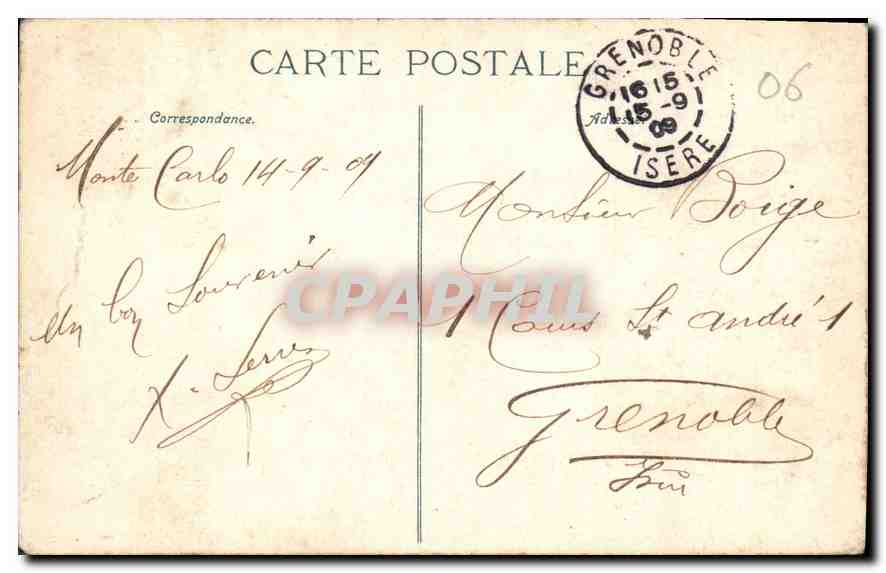 CARTE POSTALE
GRENOBLE
16 15
15 -9
09
ISERE
06
Correspondance.
Adresse.
Monte Carlo 14-9-09
Un bon Souvenir
X. Serre
Monsieur Boige
1 Cours St André 1
Grenoble
Isère
CPAPHIL